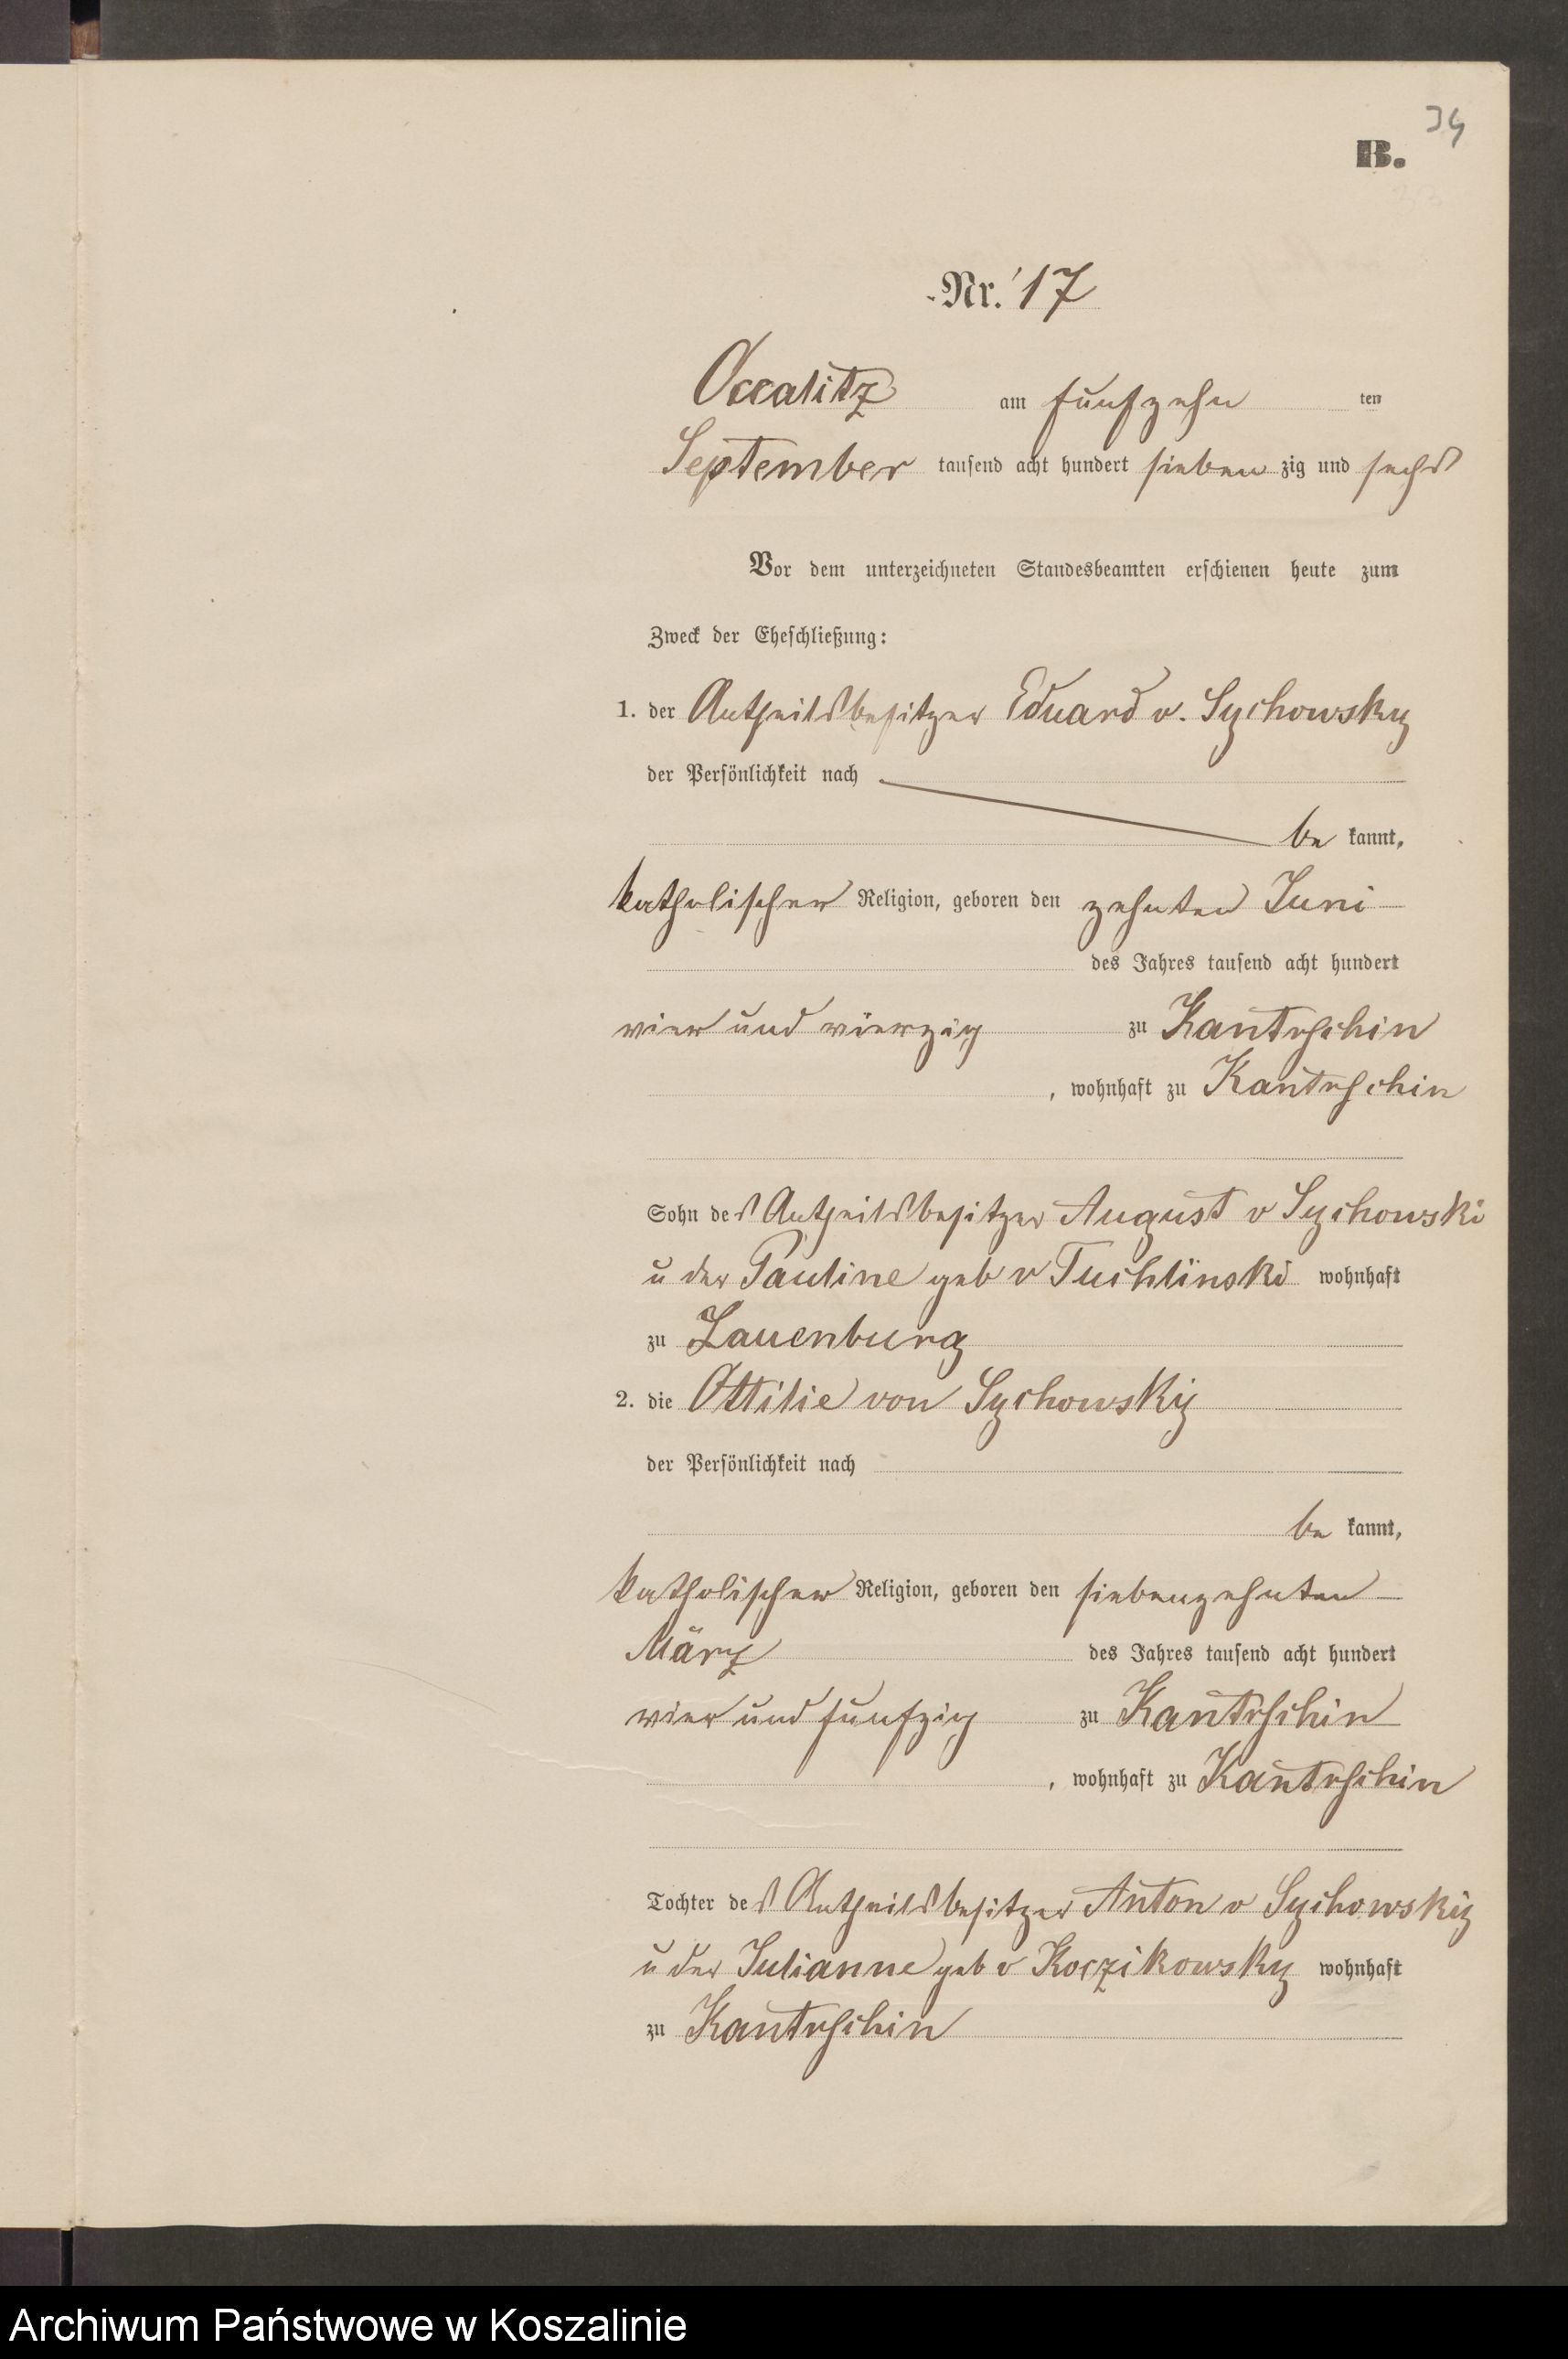 34
B.
Nr. 17
Occalitz am fünfzehn ten
September tausend acht hundert sieben zig und sechs
Vor dem unterzeichneten Standesbeamten erschienen heute zum
Zweck der Eheschließung:
1. der Antheilsbesitzer Eduard v. Sychowsky
der Persönlichkeit nach
be kannt,
katholischer Religion, geboren den zehnten Juni
des Jahres tausend acht hundert
vier und vierzig zu Kantrschin
, wohnhaft zu Kantrschin
Sohn des Antheilsbesitzer August v Sychowski
u der Pauline geb v Tuchlinski wohnhaft
zu Lauenburg
2. die Ottilie von Sychowsky
der Persönlichkeit nach
be kannt,
katholischer Religion, geboren den siebenzehnten
März des Jahres tausend acht hundert
vier und fünfzig zu Kantrschin
, wohnhaft zu Kantrschin
Tochter des Antheilsbesitzer Anton v Sychowsky
u der Julianne geb v Koczikowsky wohnhaft
zu Kantrschin
Archiwum Państwowe w Koszalinie